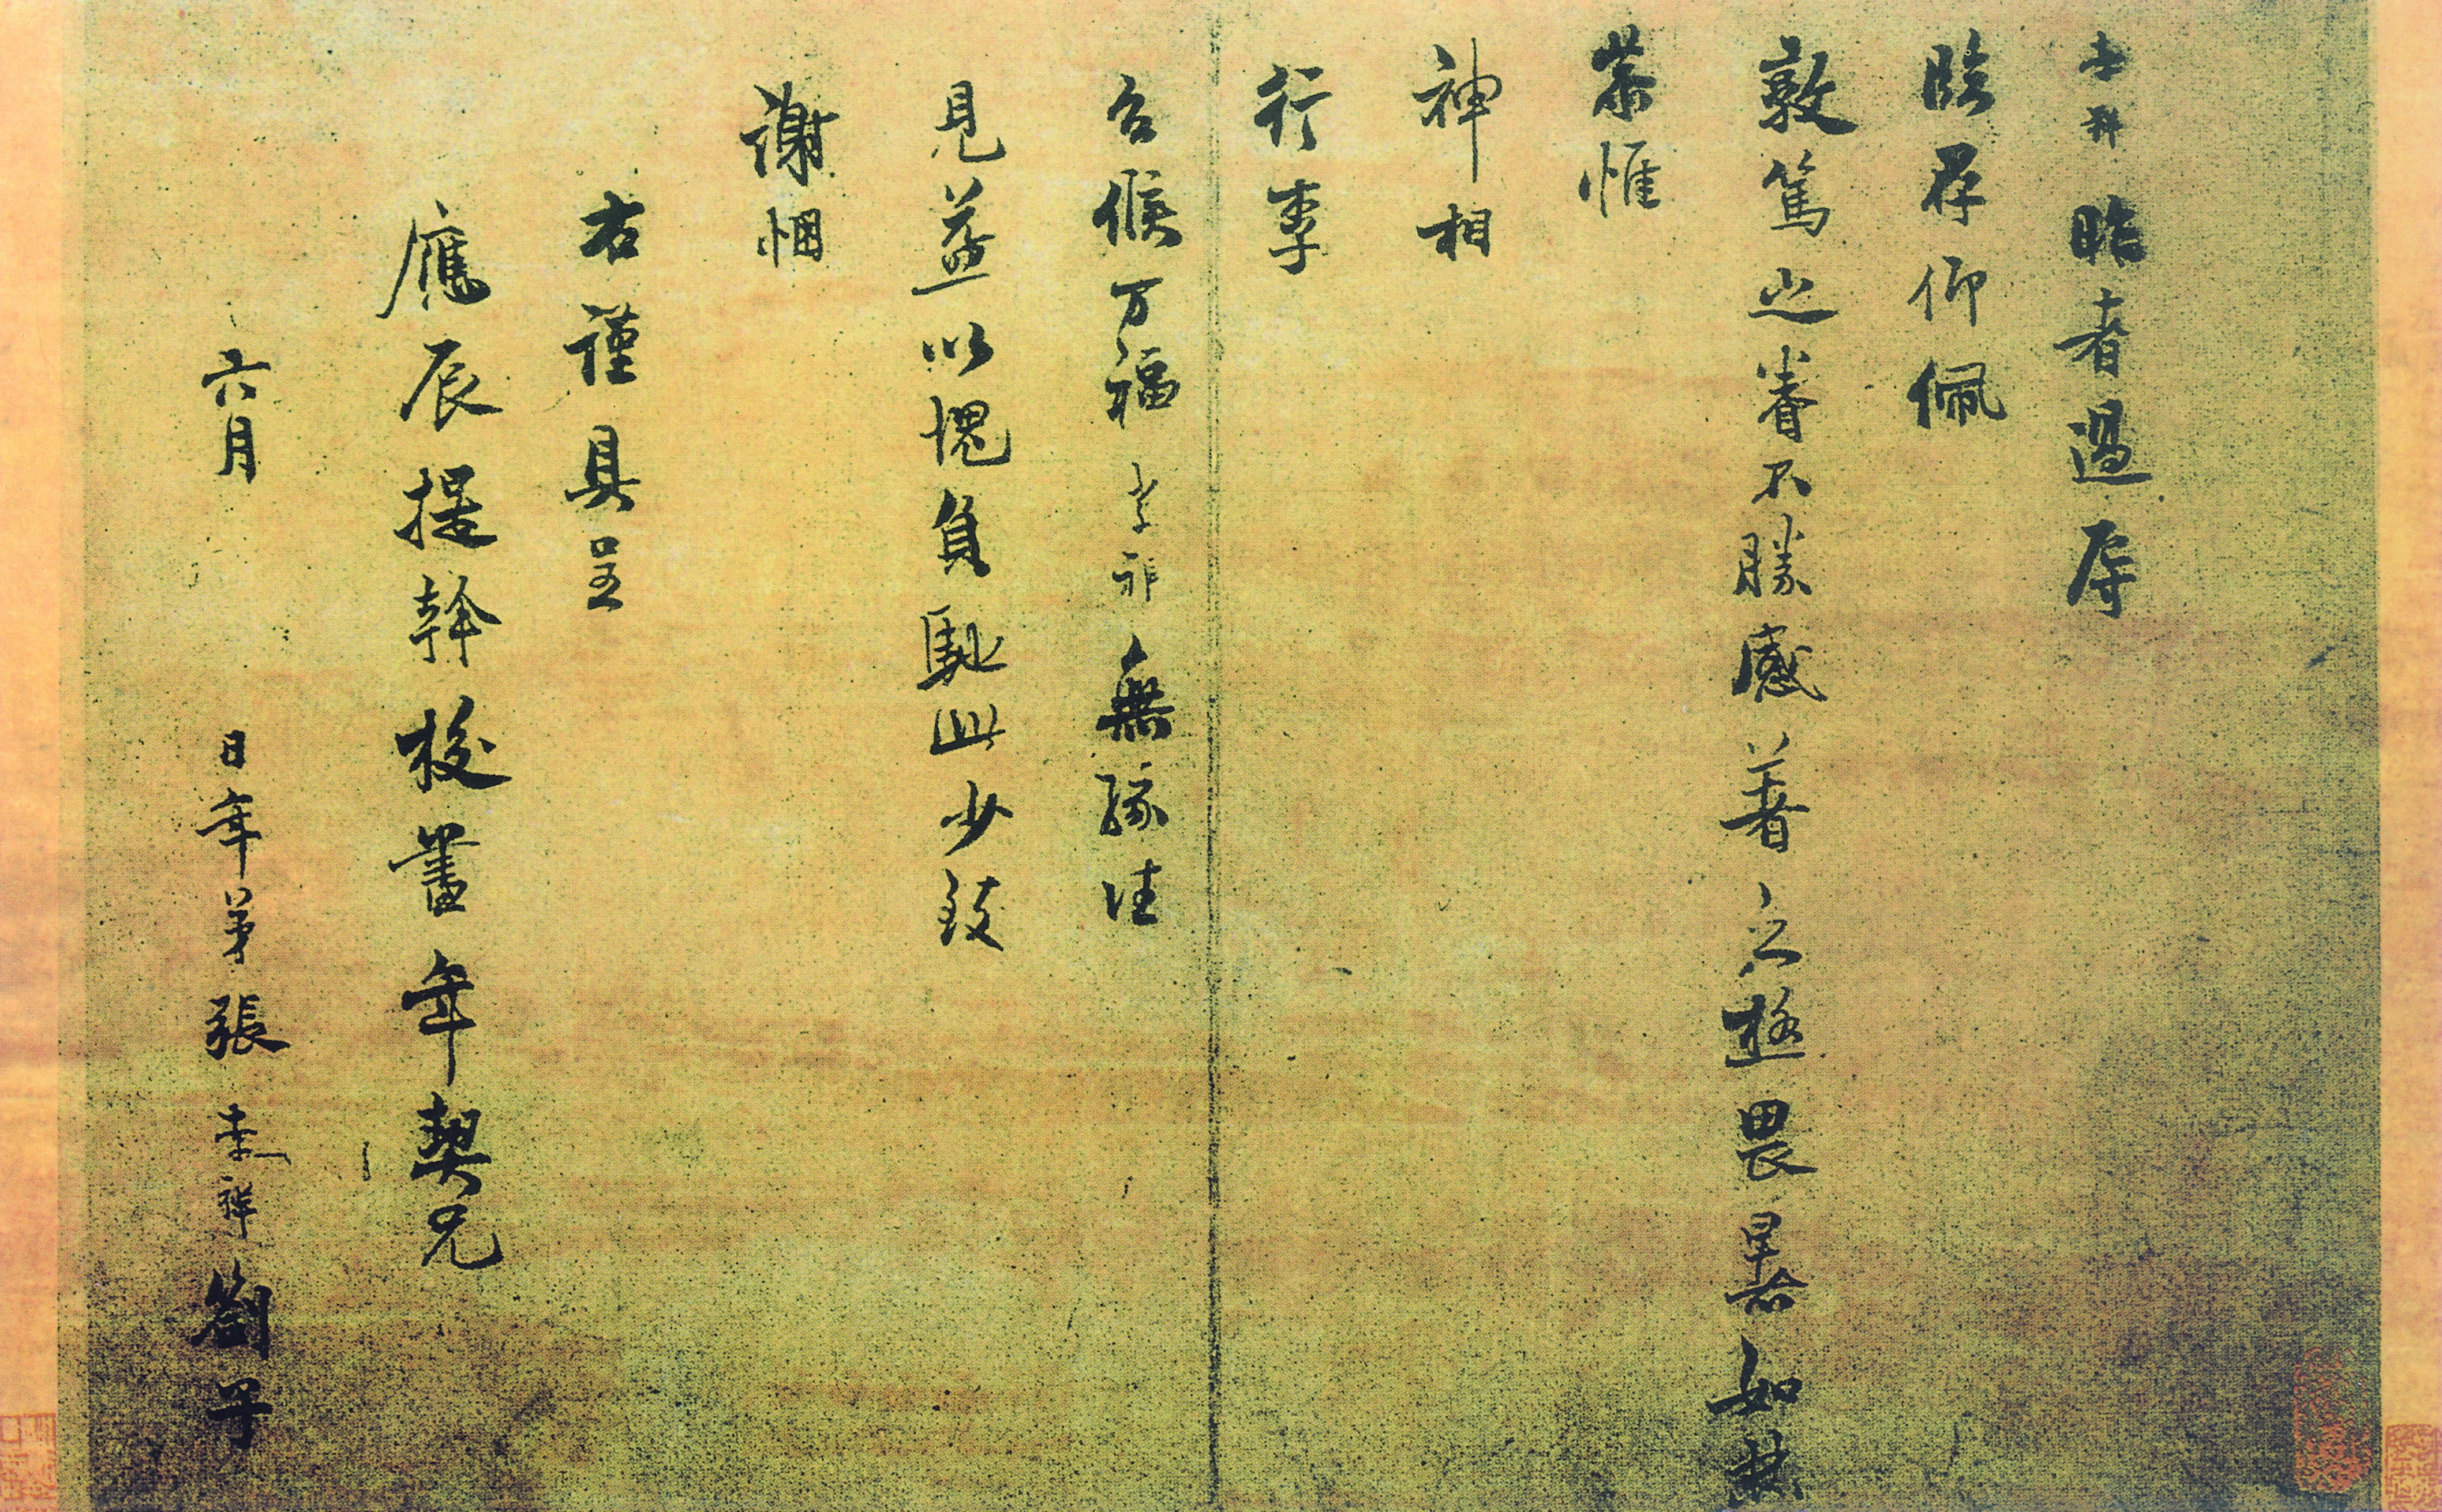 孝祥昨者過辱
臨存仰佩
敦篤之眷不勝感著之極畏暑如焚
恭惟
神相
行李
台候万福孝祥無緣往
見益以愧負馳此少致
謝悃
右謹具呈
應辰提幹校書年契兄
六月日年弟張孝祥劄子